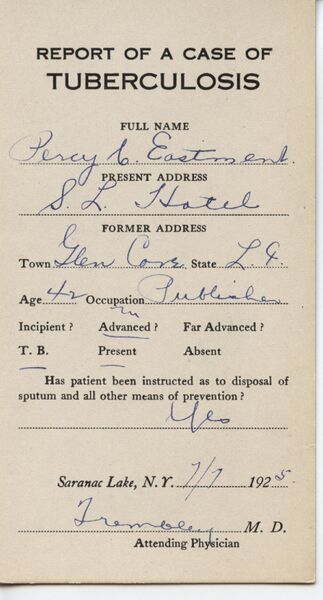 REPORT OF A CASE OF
TUBERCULOSIS
FULL NAME
Percy C. Eastment.
PRESENT ADDRESS
S. L. Hotel
FORMER ADDRESS
Town Glen Cove State L. I.
Age 42 Occupation Publisher
Incipient? Advanced? Far Advanced?
T. B. Present Absent
Has patient been instructed as to disposal of
sputum and all other means of prevention?
Yes
Saranac Lake, N. Y. 7/7 1925.
Trembley M. D.
Attending Physician